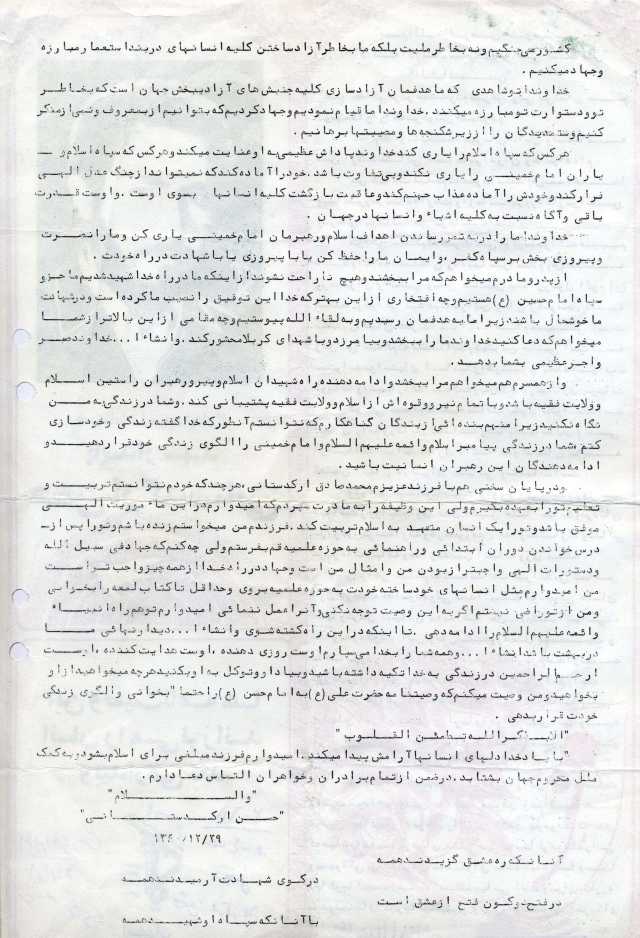 کشور می جنگیم و نه بخاطر ملیت بلکه ما بخاطر آزاد ساختن کلیه انسانهای در بند استعمار مبارزه
و جهاد میکنیم .
خداوندا تو شاهدی که ما هدفمان آزادسازی کلیه جنبش های آزادیبخش جهان است که بخاطر
تو و دستوارت تو مبارزه میکنند . خداوندا ما قیام نمودیم و جهاد کردیم که بتوانیم امر بمعروف و نهی از منکر
کنیم و ستمدیدگان را از زیر شکنجه ها و مصیبتها برهانیم .
هر کس که سپاه اسلام را یاری کند خداوند پاداش عظیمی به او عنایت میکند و هر کس که سپاه اسلام و
یاران امام خمینی را یاری نکند و بی تفاوت باشد . خود را آماده کند که نمیتواند از چنگ عدل الهی
فرار کند و خودش را آماده عذاب جهنم کند و عاقبت بازگشت کلیه انسانها بسوی اوست . و اوست قدرت
باقی و آگاه نسبت به کلیه اشیاء و انسانها در جهان .
خداوندا ما را در به ثمر رساندن اهداف اسلام و رهبرمان امام خمینی یاری کن و ما را نصرت
و پیروزی بخش بر سپاه کفر ، و ایمان ما را حفظ کن یا با پیروزی یا با شهادت در راه خودت .
از پدر و مادرم میخواهم که مرا ببخشند و هیچ ناراحت نشوند از اینکه ما در راه خدا شهید شدیم ما جزو
سپاه امام حسین (ع) هستیم و چه افتخاری از این بهتر که خدا این توفیق را نصیب ما کرده است و در شهادت
ما خوشحال باشند زیرا ما به هدفمان رسیدیم و به لقاء الله پیوستیم و چه مقامی از این بالاتر از شما
میخواهم که دعا کنید خداوند ما را ببخشد و بیامرزد و با شهدای کربلا محشور کند . و انشاء ا... خداوند صبر
و اجر عظیمی بشما بدهد .
و از همسرم هم میخواهم مرا ببخشد و ادامه دهنده راه شهیدان اسلام و پیرو رهبران راستین اسلام
و ولایت فقیه باشد و با تمام نیرو و قوه اش از اسلام و ولایت فقیه پشتیبانی کند . و شما در زندگی به من
نگاه نکنید زیرا منهم بنده ائی از بندگان گناهکارم که نتوانستم آنطور که خدا گفته زندگی و خودسازی
کنم ، شما در زندگی پیامبر اسلام و ائمه علیهم السلام و امام خمینی را الگوی زندگی خود قرار دهید و
ادامه دهندگان این رهبران انسانیت باشید .
و در پایان سخنی هم با فرزند عزیزم محمد صادق ارکدستانی ، هر چند که خودم نتوانستم تربیت و
تعلیم تو را بعهده بگیرم ولی این وظیفه را به مادرت سپردم که امیدوارم در این ماءموریت الهی
موفق باشد و تو را یک انسان متعهد به اسلام تربیت کند . فرزندم من میخواستم زنده باشم و تو را پس از
درس خواندن دوران ابتدائی و راهنمائی به حوزه علمیه قم بفرستم ولی چه کنم که جهاد فی سبیل الله
و دستورات الهی واجبتر از بودن من و امثال من است و جهاد در راه خدا از همه چیز واجب تر است
من امیدوارم مثل انسانهای خودساخته خودت به حوزه علمیه بروی و حداقل تا کتاب لمعه را بخوانی
و من از تو راضی نیستم اگر به این وصیت توجه نکنی و آنرا عمل ننمائی امیدوارم تو هم راه انبیاء
و ائمه علیهم السلام را ادامه دهی . تا اینکه در این راه کشته شوی و انشاء ا... دیدار نهائی ما
در بهشت باشد انشاء ا... و همه شما را بخدا می سپارم اوست روزی دهنده ، اوست هدایت کننده ، اوست
ارحم الراحمین در زندگی به خدا تکیه داشته باشید و بیاد او و توکل به او بکنید هر چه میخواهید از او
بخواهید و من وصیت میکنم که وصیتنامه حضرت علی (ع) به امام حسن (ع) را حتما " بخوانی و الگوی زندگی
خودت قرار بدهی .
"الا بذکر الله تطمئن القلوب "
"با یاد خدا دلهای انسانها آرامش پیدا میکند . امیدوارم فرزند مبلغی برای اسلام بشود و به کمک
ملل محروم جهان بشتابد . در ضمن از تمام برادران و خواهران التماس دعا دارم .
"والسلام "
"حسن ارکدستانی "
۱۳۶۰/۱۲/۲۹
آنانکه ره عشق گزیدند همه
در کوی شهادت آرمیدند همه
در فتح دو کون فتح از عشق است
با آنانکه سپاه او شهیدند همه